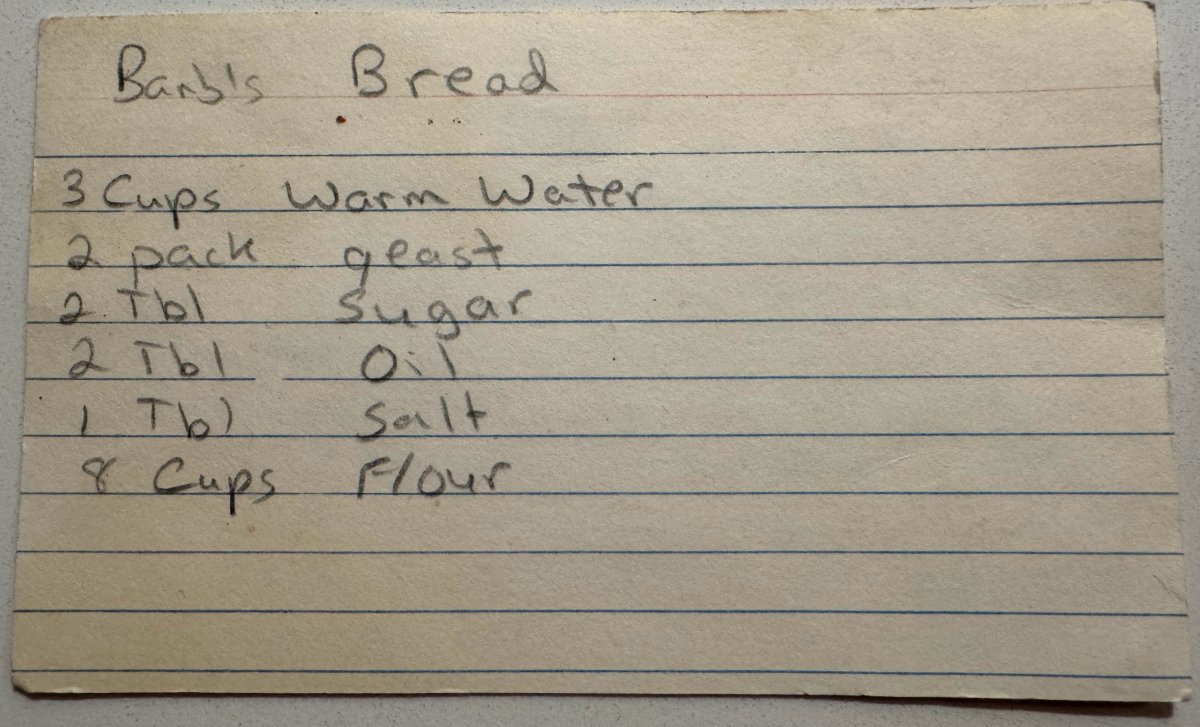 Barb's Bread
3 Cups Warm Water
2 pack yeast
2 Tbl Sugar
2 Tbl Oil
1 Tbl Salt
8 Cups Flour